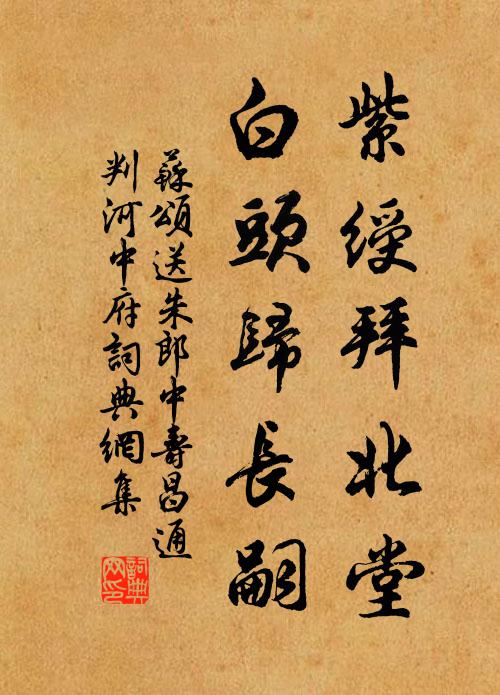 紫綬拜北堂
白頭歸長嗣
蘇頌送朱郎中壽昌通
判河中府詞典網集
詞典
网印